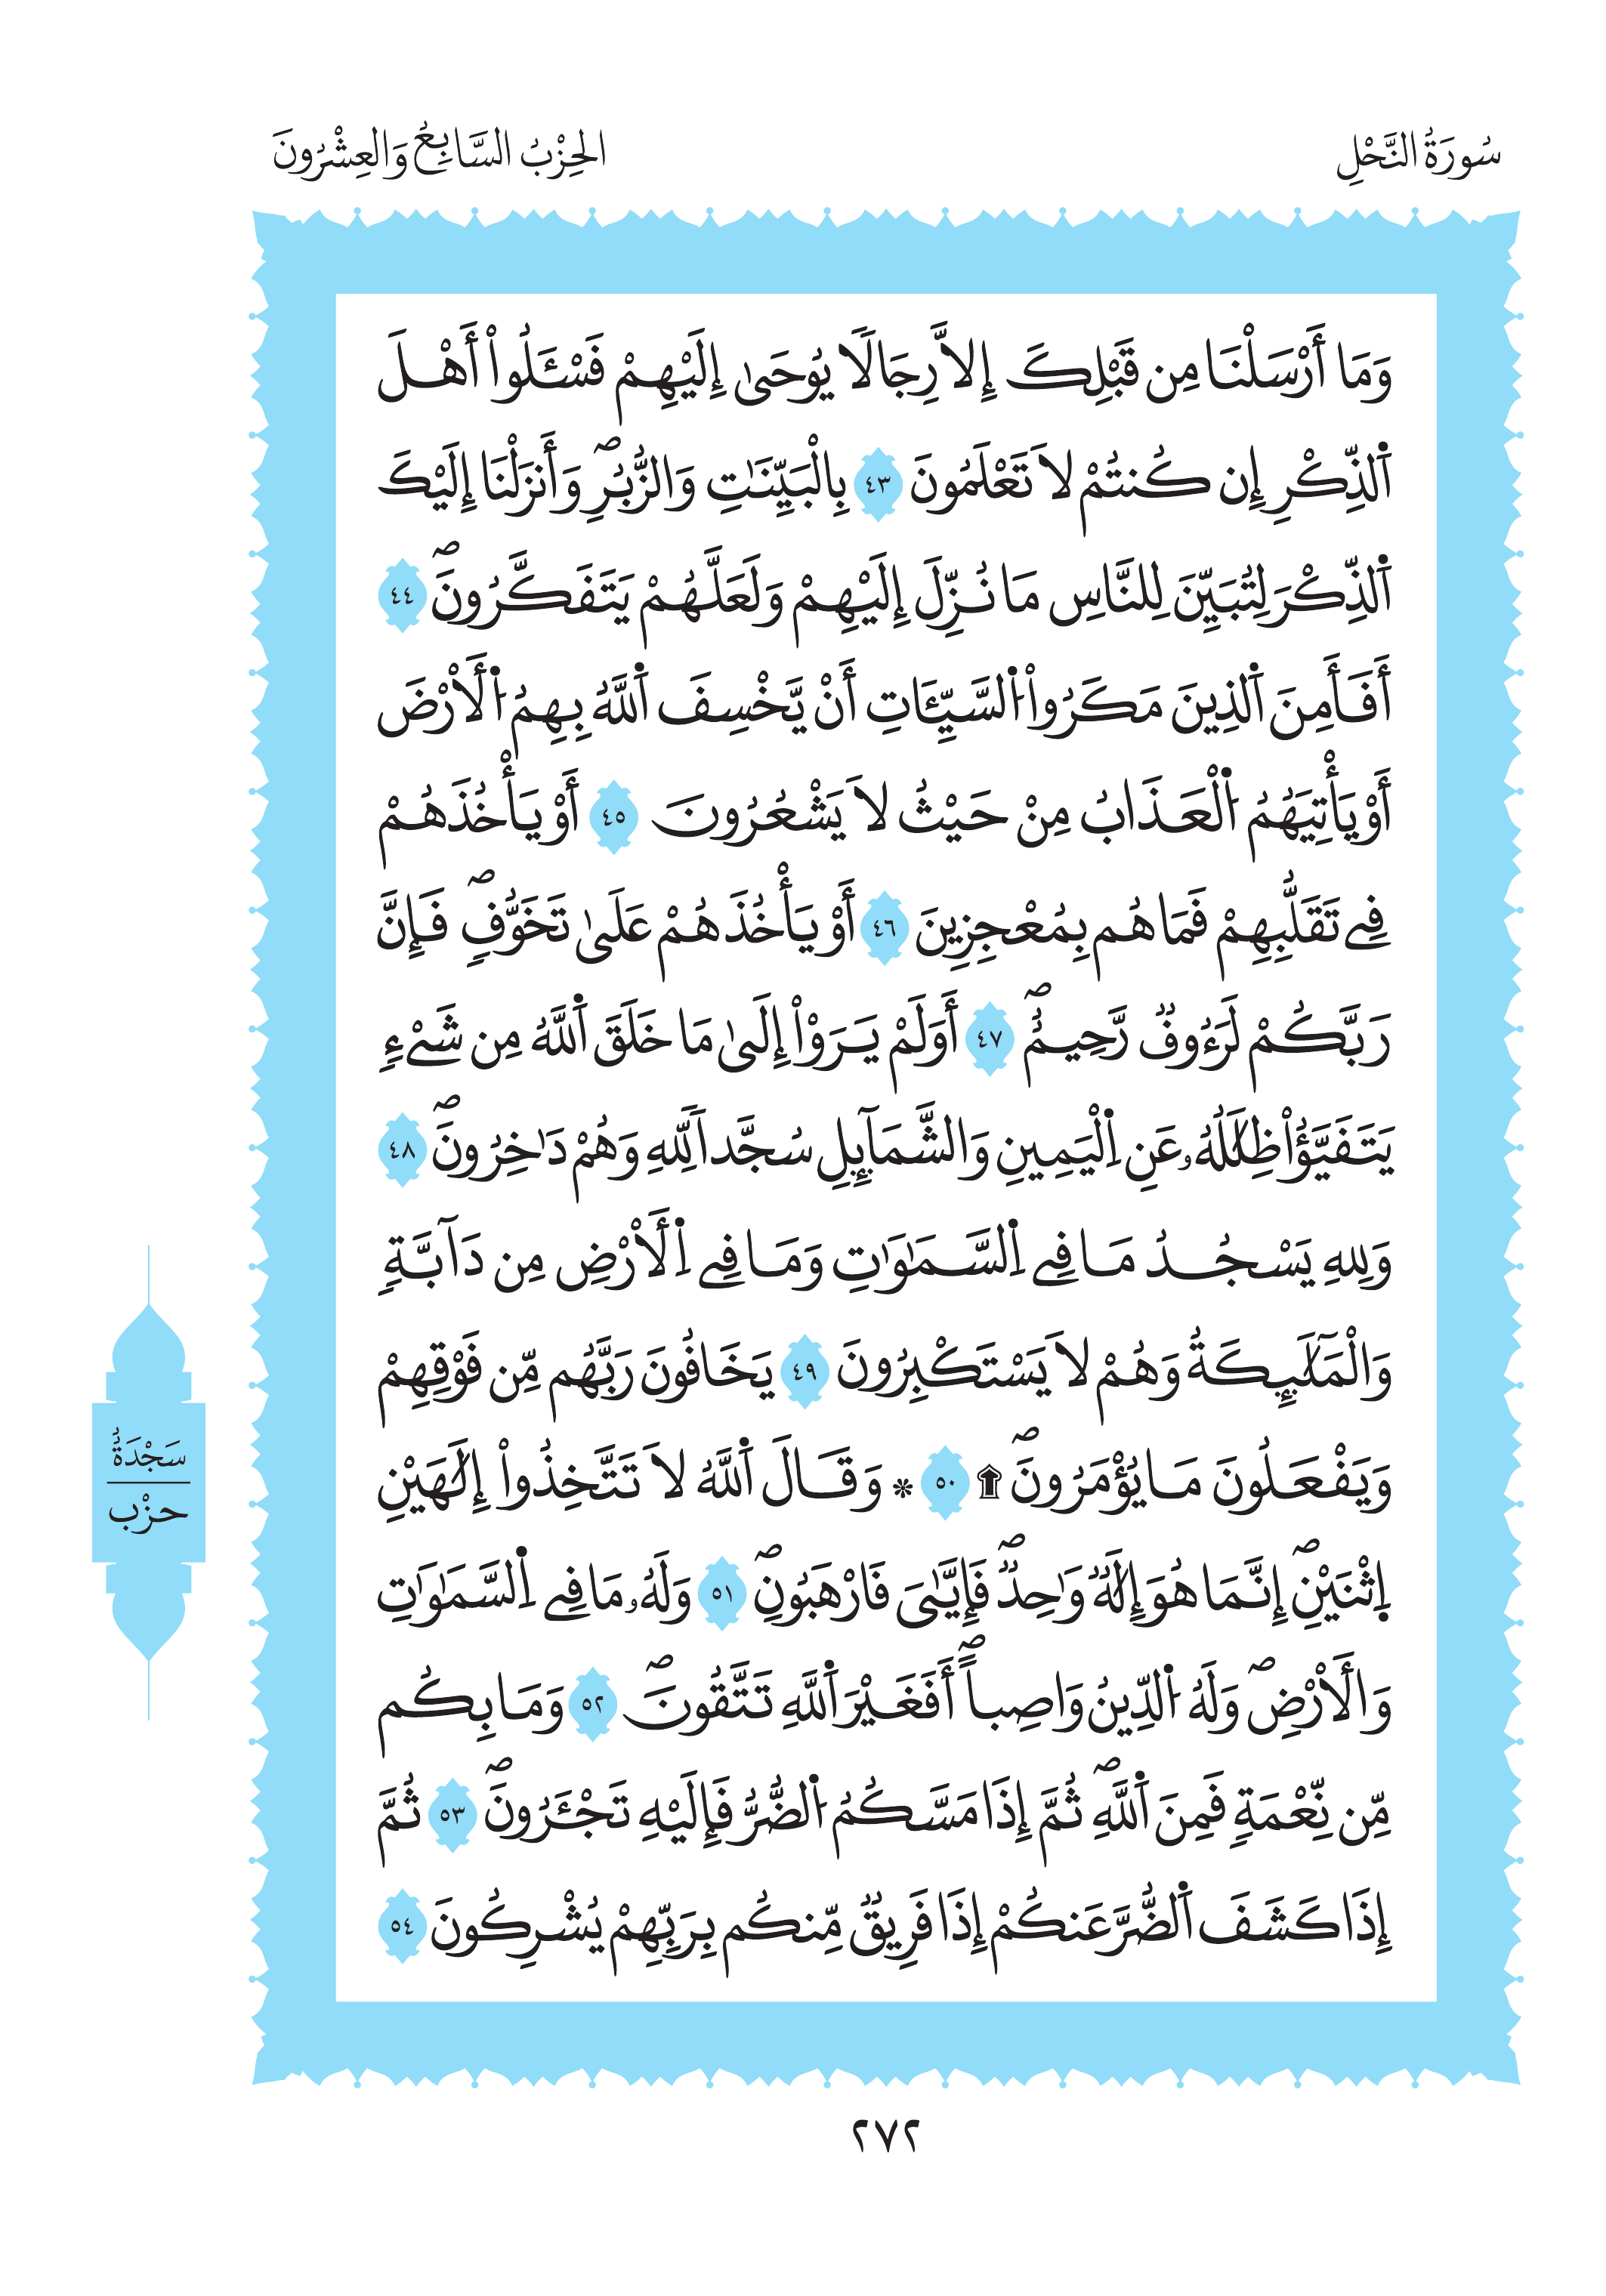 سُورَةُ النَّحْلِ
الحِزْبُ السَّابِعُ وَالعِشْرُونَ
وَمَا أَرْسَلْنَا مِن قَبْلِكَ إِلاَّ رِجَالاً يُوحَىٰ إِلَيْهِمْ فَسْـَٔلُواْ أَهْلَ
اَ۬لذِّكْرِ إِن كُنتُمْ لاَ تَعْلَمُونَ ٤٣ بِالْبَيِّنَٰتِ وَالزُّبُرِۖ وَأَنزَلْنَا إِلَيْكَ
اَ۬لذِّكْرَ لِتُبَيِّنَ لِلنَّاسِ مَا نُزِّلَ إِلَيْهِمْ وَلَعَلَّهُمْ يَتَفَكَّرُونَۖ ٤٤
أَفَأَمِنَ اَ۬لذِينَ مَكَرُواْ اُ۬لسَّيِّـَٔاتِ أَنْ يَّخْسِفَ اَ۬للَّهُ بِهِمُ اُ۬لَارْضَ
أَوْ يَأْتِيَهُمُ اُ۬لْعَذَابُ مِنْ حَيْثُ لاَ يَشْعُرُونَ ٤٥ أَوْ يَأْخُذَهُمْ
فِے تَقَلُّبِهِمْ فَمَا هُم بِمُعْجِزِينَ ٤٦ أَوْ يَأْخُذَهُمْ عَلَىٰ تَخَوُّفٖۖ فَإِنَّ
رَبَّكُمْ لَرَءُوفٞ رَّحِيمٌۖ ٤٧ أَوَلَمْ يَرَوْاْ إِلَىٰ مَا خَلَقَ اَ۬للَّهُ مِن شَےْءٖ
يَتَفَيَّؤُاْ ظِلَٰلُهُۥ عَنِ اِ۬لْيَمِينِ وَالشَّمَآئِلِ سُجَّداٗ لِّلهِ وَهُمْ دَٰخِرُونَۖ ٤٨
وَلِلهِ يَسْجُدُ مَا فِے اِ۬لسَّمَٰوَٰتِ وَمَا فِے اِ۬لَارْضِ مِن دَآبَّةٖ
وَالْمَلَٰٓئِكَةُ وَهُمْ لاَ يَسْتَكْبِرُونَ ٤٩ يَخَافُونَ رَبَّهُم مِّن فَوْقِهِمْ
وَيَفْعَلُونَ مَا يُؤْمَرُونَۖ ۩ ٥٠ * وَقَالَ اَ۬للَّهُ لاَ تَتَّخِذُواْ إِلَٰهَيْنِ
اِ۪ثْنَيْنِۖ إِنَّمَا هُوَ إِلَٰهٞ وَٰحِدٞۖ فَإِيَّٰىَ فَارْهَبُونِۖ ٥١ وَلَهُۥ مَا فِے اِ۬لسَّمَٰوَٰتِ
وَالَارْضِۖ وَلَهُ اُ۬لدِّينُ وَاصِباًۖ أَفَغَيْرَ اَ۬للَّهِ تَتَّقُونَۖ ٥٢ وَمَا بِكُم
مِّن نِّعْمَةٖ فَمِنَ اَ۬للَّهِۖ ثُمَّ إِذَا مَسَّكُمُ اُ۬لضُّرُّ فَإِلَيْهِ تَجْـَٔرُونَۖ ٥٣ ثُمَّ
إِذَا كَشَفَ اَ۬لضُّرَّ عَنكُمْ إِذَا فَرِيقٞ مِّنكُم بِرَبِّهِمْ يُشْرِكُونَ ٥٤
سَجْدَةُ
حزْب
٢٧٢